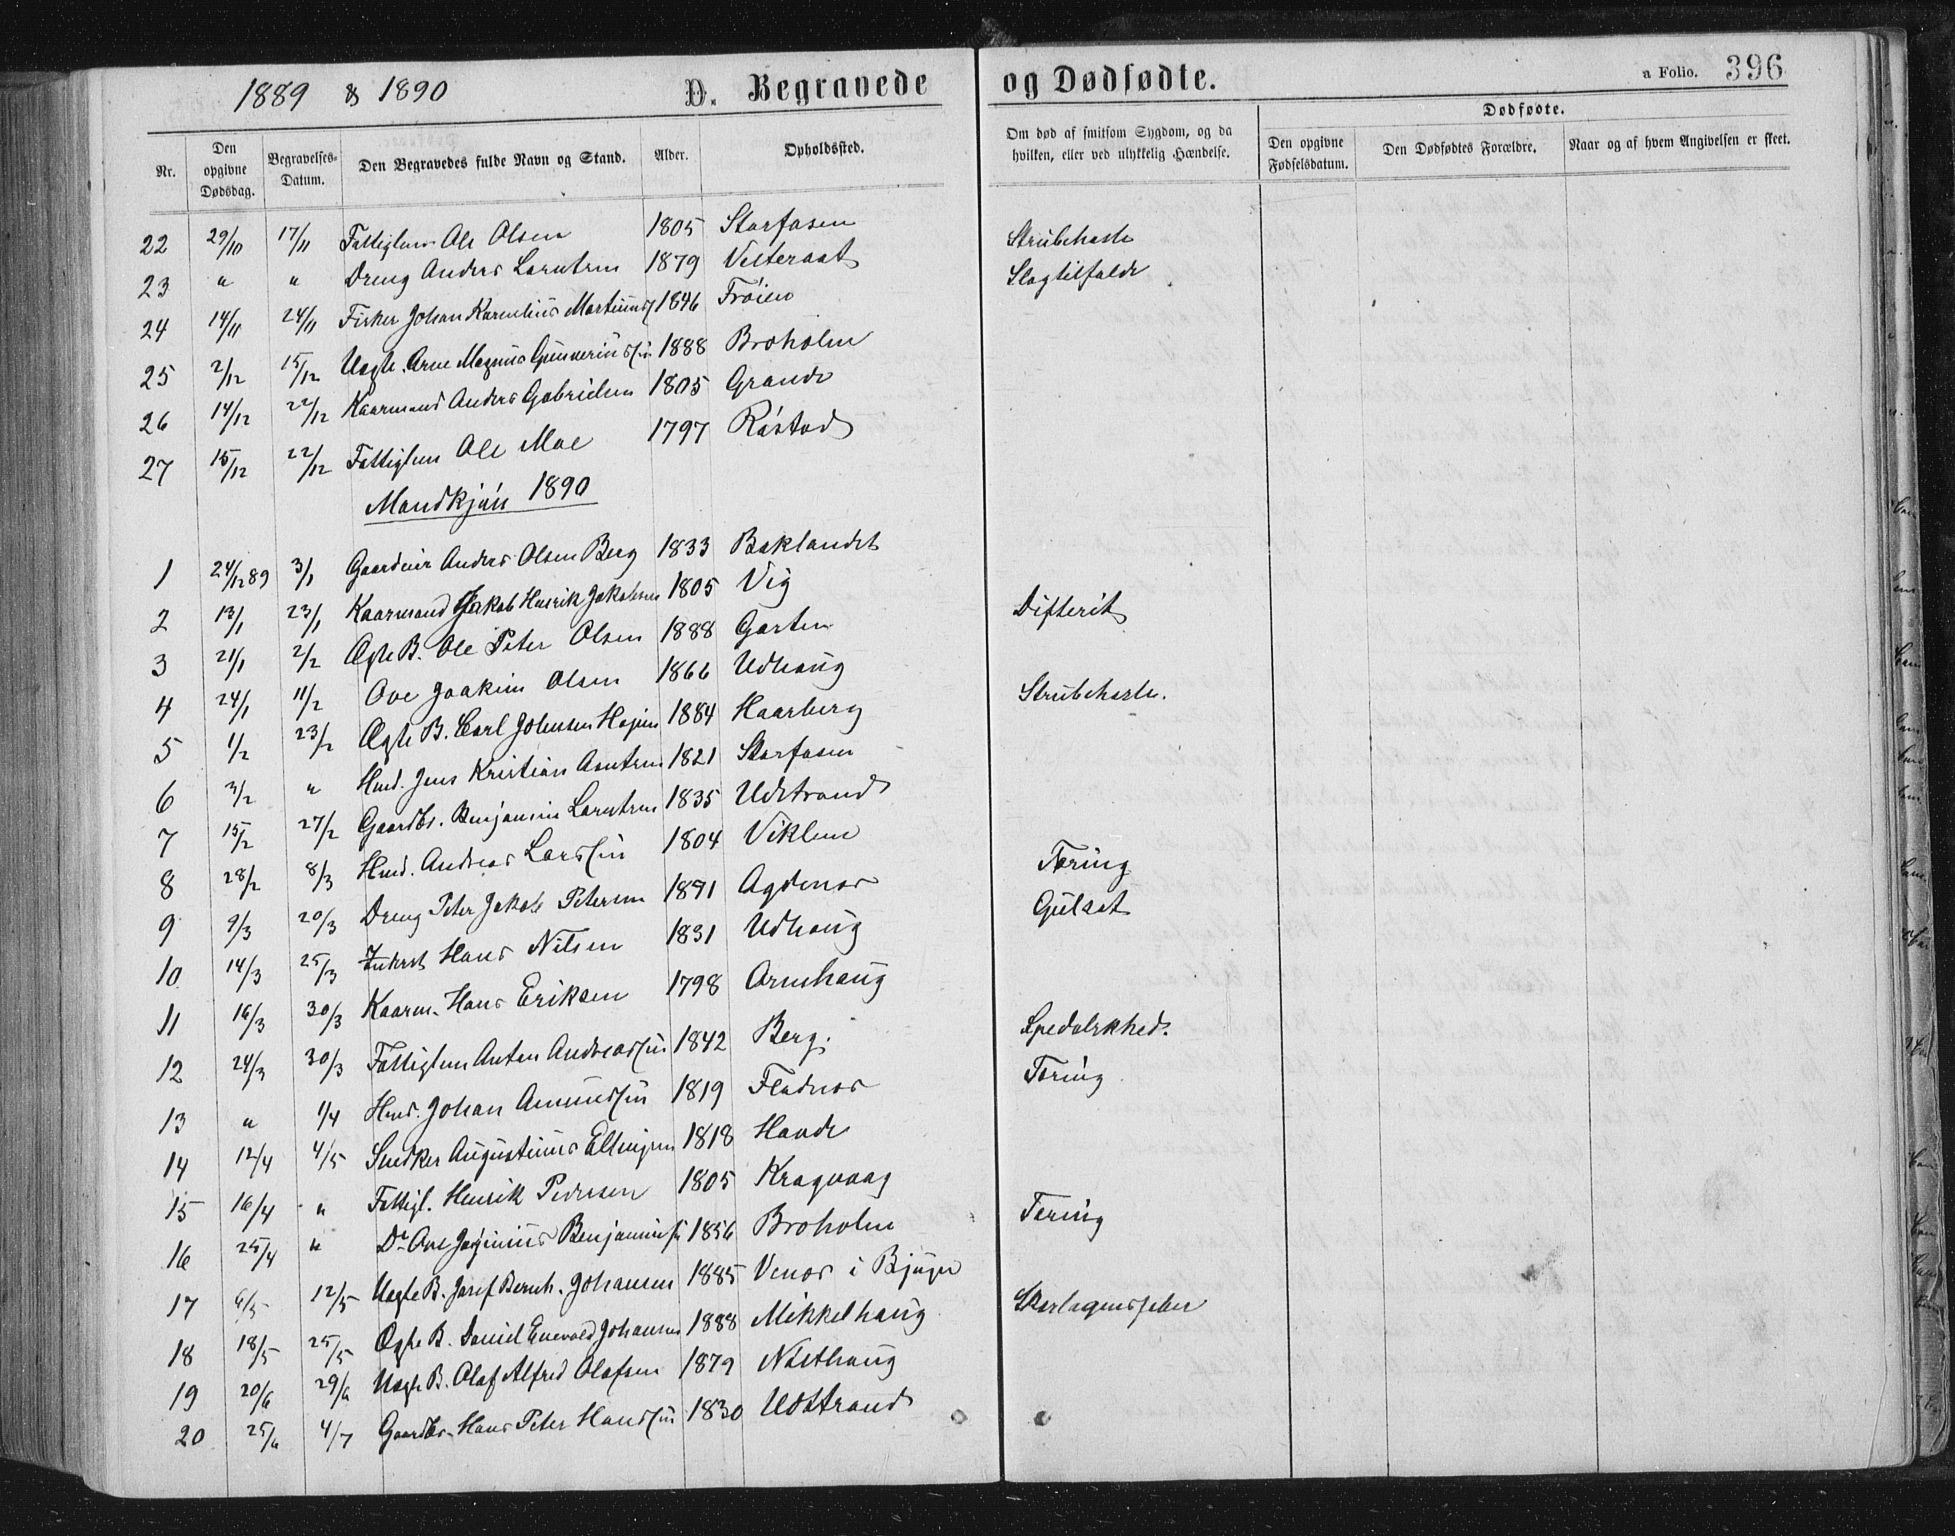 1889 & 1890 D. Begravede og Dødfødte. a Folio. 396
Nr. Den opgivne Dødsdag. Begravelses-Datum. Den Begravedes fulde Navn og Stand. Alder. Opholdssted. Om død af smitsom Sygdom, og da hvilken, eller ved ulykkelig Hændelse. Dødfødte. Den opgivne Fødselsdatum. Den Dødfødtes Forældre. Naar og af hvem Angivelsen er skeet.
22 29/10 17/11 Fattiglem Ole Olsen 1805 Storfosen
23 " " Dreng Anders Larntsen 1879 Velteraat Strubehoste
24 14/11 24/11 Fisker Johan Kornelius Martinus 1846 Frøien Slagtilfælde
25 2/12 15/12 Uægte Arne Magnus Gunnerius 1888 Broholm
26 14/12 22/12 Kaarmand Anders Gabrielsen 1805 Grande
27 15/12 22/12 Fattiglem Ole Moe 1797 Røstad
Mandkjøn 1890
1 24/12 89 3/1 Gaardeier Anders Olsen Berg 1833 Baklandet
2 13/1 23/1 Kaarmand Jakob Henrik Jakobsen 1805 Vig
3 21/1 2/2 Ægte B. Ole Peter Olsen 1888 Garten Difterit
4 24/1 11/2 Ove Joakim Olsen 1866 Udhaug
5 1/2 23/2 Ægte B. Carl Johensen 1884 Haarberg Strubehoste.
6 3/2 " Hmd. Jens Kristian Arntsen 1821 Storfosen
7 15/2 27/2 Gaardbr. Benjamin Larntsen 1835 Udstrand
8 28/2 8/3 Hmd. Andreas Larssen 1804 Viklem
9 9/3 20/3 Dreng Peter Jakob Petersen 1871 Agdenes Tæring
10 14/3 25/3 Inderst Hans Nilsen 1831 Udhaug Gulsot
11 16/3 30/3 Kaarm. Hans Eriksen 1798 Arnehaug
12 24/3 30/3 Fattiglem Anton Andreassen 1842 Berg. Spedalskhed.
13 " 1/4 Hmd. Johan Amundsen 1819 Fladnes Tæring
14 12/4 4/5 Snedker Augustinus Ellingsen 1818 Hovde
15 16/4 " Fattigl. Henrik Pedersen 1805 Kragvaag
16 25/4 " Do Ove Benjaminsen 1856 Broholm Tæring
17 6/5 12/5 Uægte B. Josef Bernh. Johansen 1885 Venes i Bjugn
18 18/5 25/5 Ægte B. Daniel Enevald Johansen 1888 Mikkelhaug Skarlagensfeber
19 20/6 29/6 Uægte B. Olaf Alfred Olafsen 1879 Næsthaug
20 25/6 4/7 Gaardbr. Hans Peter Hanssen 1830 Udstrand